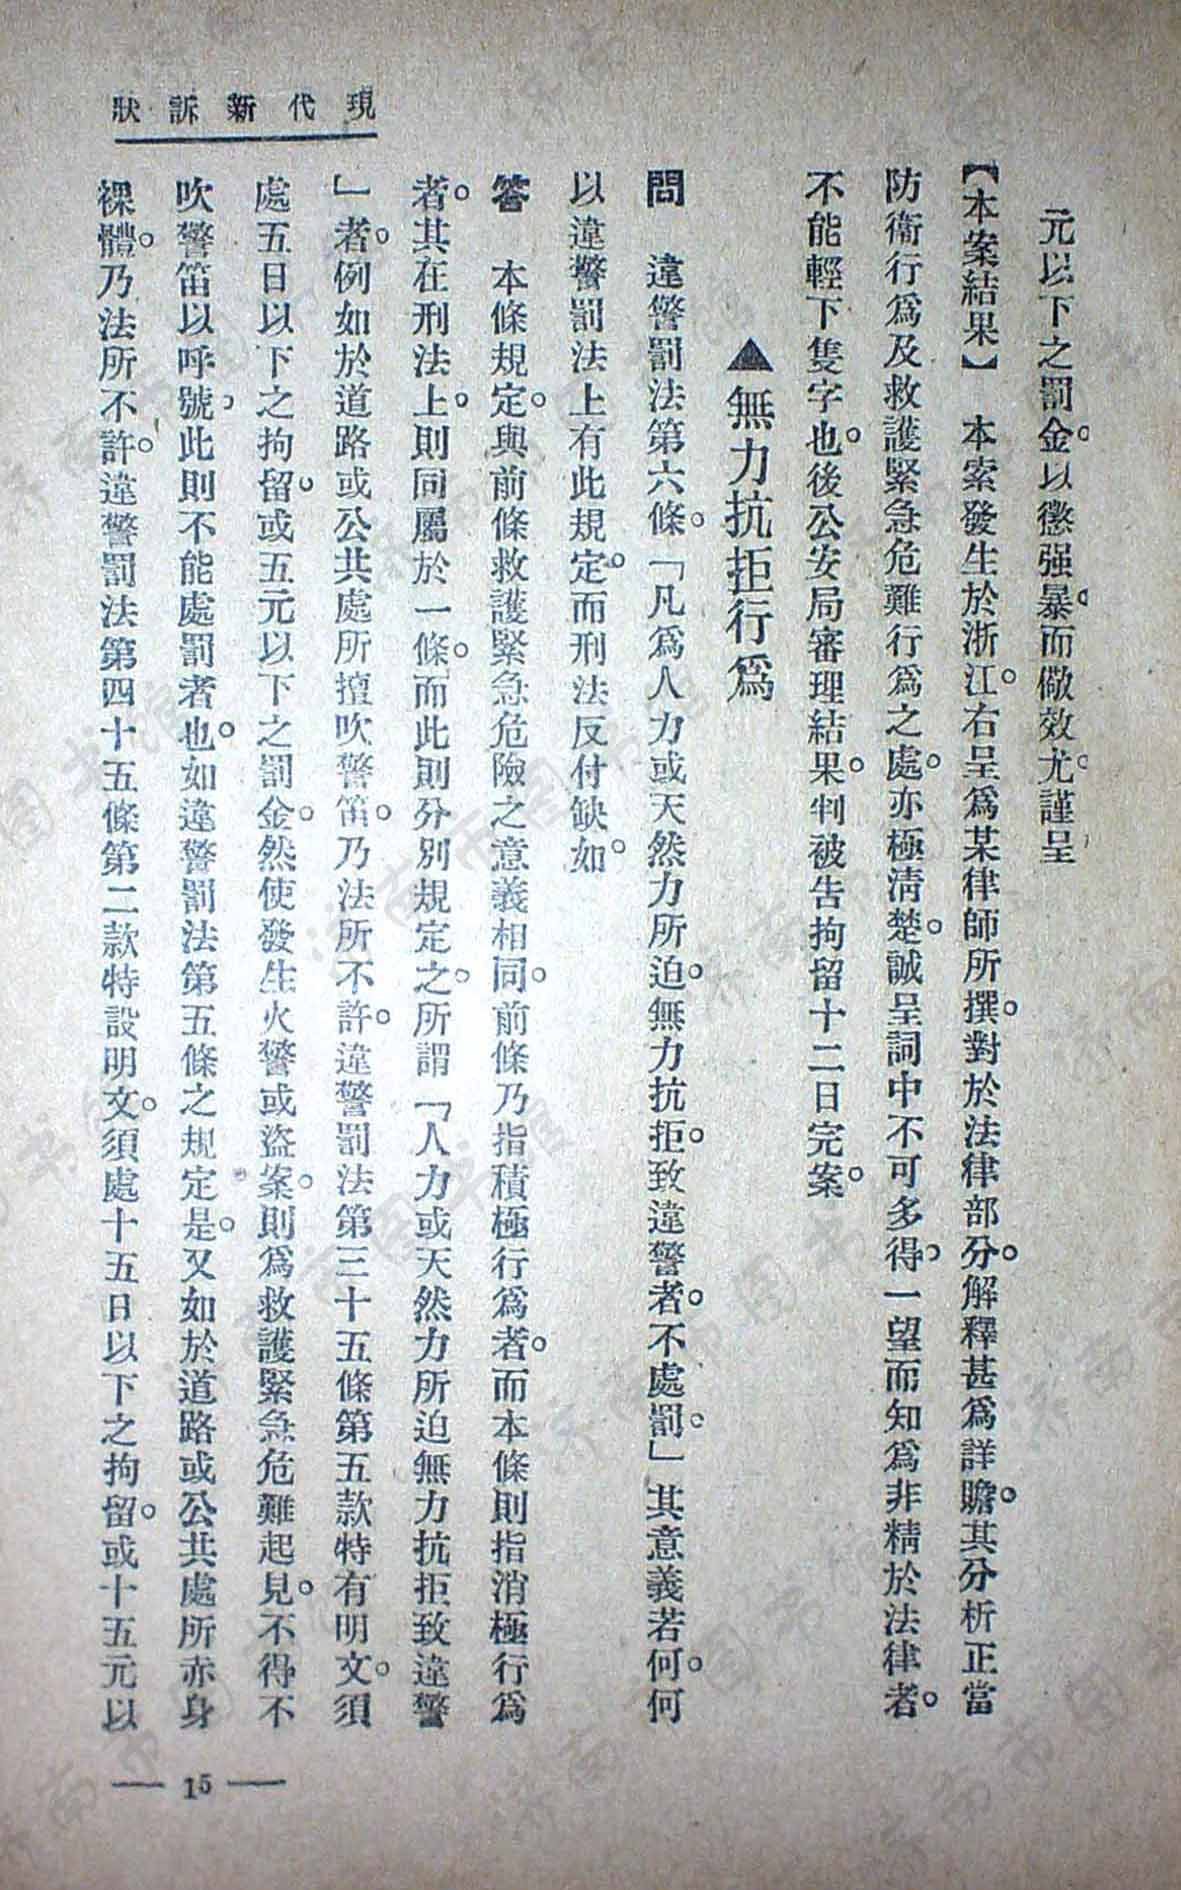 現代新訴狀
元以下之罰金。以懲强暴。而儆效尤。謹呈
【本案結果】　本索發生於浙江。右呈爲某律師所撰。對於法律部分。解釋甚爲詳贍。其分析正當
防衞行爲及救護緊急危難行爲之處。亦極淸楚。誠呈詞中不可多得。一望而知爲非精於法律者。
不能輕下隻字也。後公安局審理結果。判被告拘留十二日完案。
▲無力抗拒行爲
問　違警罰法第六條。「凡爲人力或天然力所迫。無力抗拒。致違警者。不處罰。」其意義若何。何
以違警罰法上有此規定。而刑法反付缺如。
答　本條規定。與前條救護緊急危險之意義相同。前條乃指積極行爲者。而本條則指消極行爲
者。其在刑法上。則同屬於一條。而此則分別規定之。所謂「人力或天然力所迫無力抗拒致違警
」者。例如於道路或公共處所擅吹警笛。乃法所不許。違警罰法第三十五條第五款特有明文。須
處五日以下之拘留。或五元以下之罰金。然使發生火警或盜案。則爲救護緊急危難起見。不得不
吹警笛以呼號。此則不能處罰者也。如違警罰法第五條之規定是。又如於道路或公共處所赤身
裸體。乃法所不許。違警罰法第四十五條第二款特設明文。須處十五日以下之拘留。或十五元以
— 15 —
濟南市圖书館